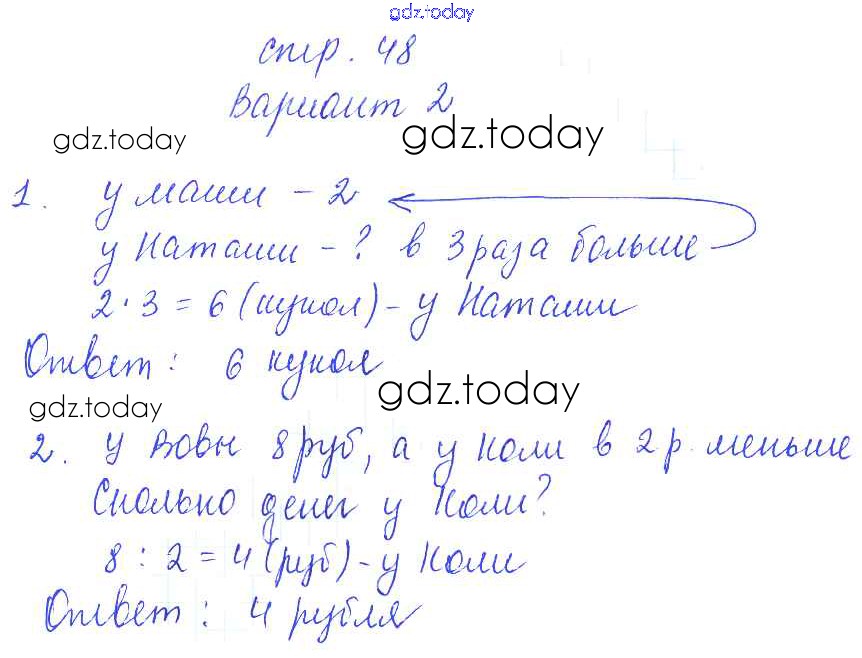 gdz.today
стр. 48
Вариант 2
gdz.today gdz.today
1. У маши – 2
у Наташи – ? в 3 раза больше
2 · 3 = 6 (кукол) – у Наташи
Ответ: 6 кукол
gdz.today gdz.today
2. У Вовы 8 руб, а у Коли в 2 р. меньше
Сколько денег у Коли?
8 : 2 = 4 (руб) – у Коли
Ответ: 4 рубля